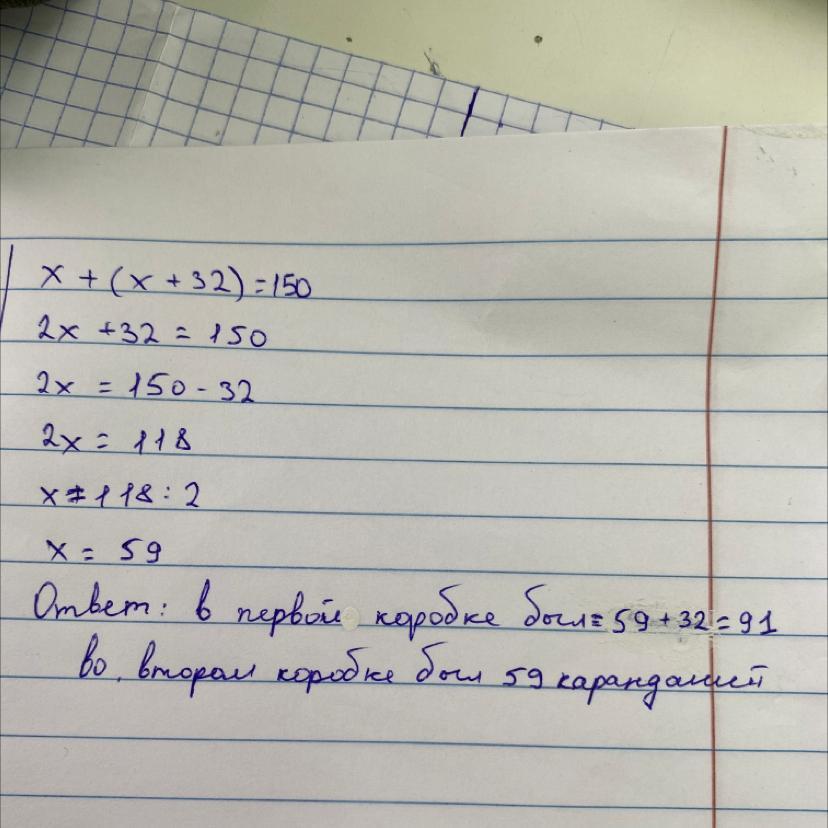 x + (x + 32) = 150
2x + 32 = 150
2x = 150 - 32
2x = 118
x = 118 : 2
x = 59
Ответ: в первой коробке был = 59 + 32 = 91
во втором коробке был 59 карандашей